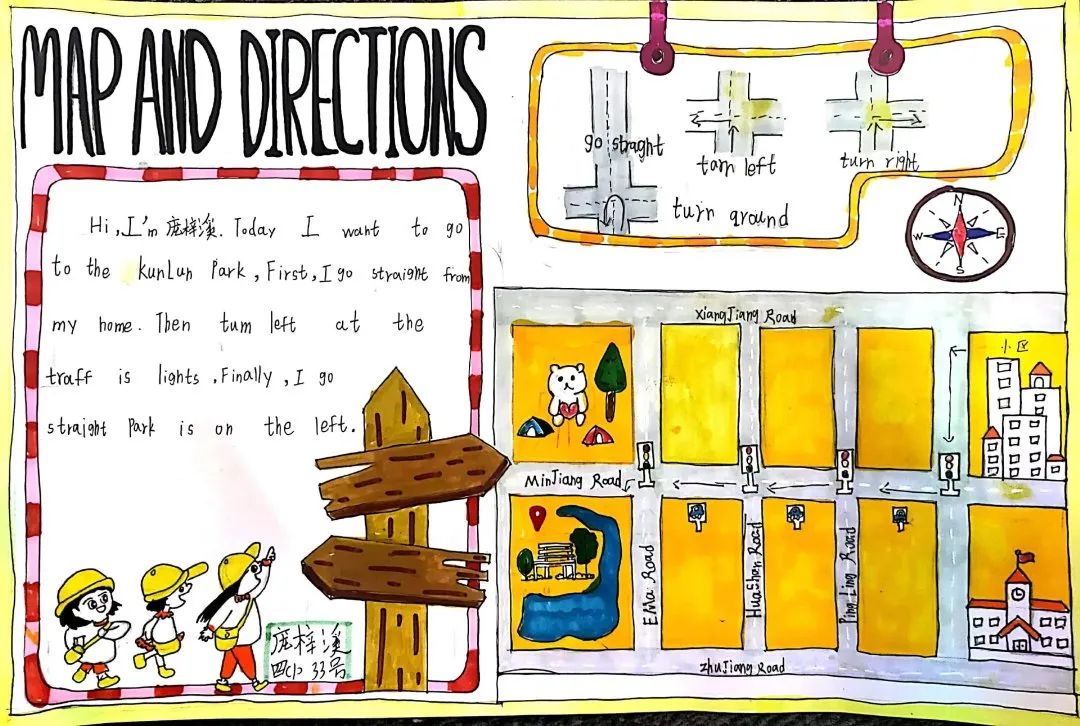 MAP AND DIRECTIONS
Hi, I'm 庞梓溪. Today I want to go
to the KunLun Park, First, I go straight from
my home. Then turn left at the
traff is lights, Finally, I go
straight Park is on the left.
庞梓溪
四(1) 33号
go straght
tarn left
turn right
turn ground
N
W
E
S
XiangJiang Road
小区
MinJiang Road
EMa Road
HuaShan Road
Ping Ling Road
zhuJiang Road